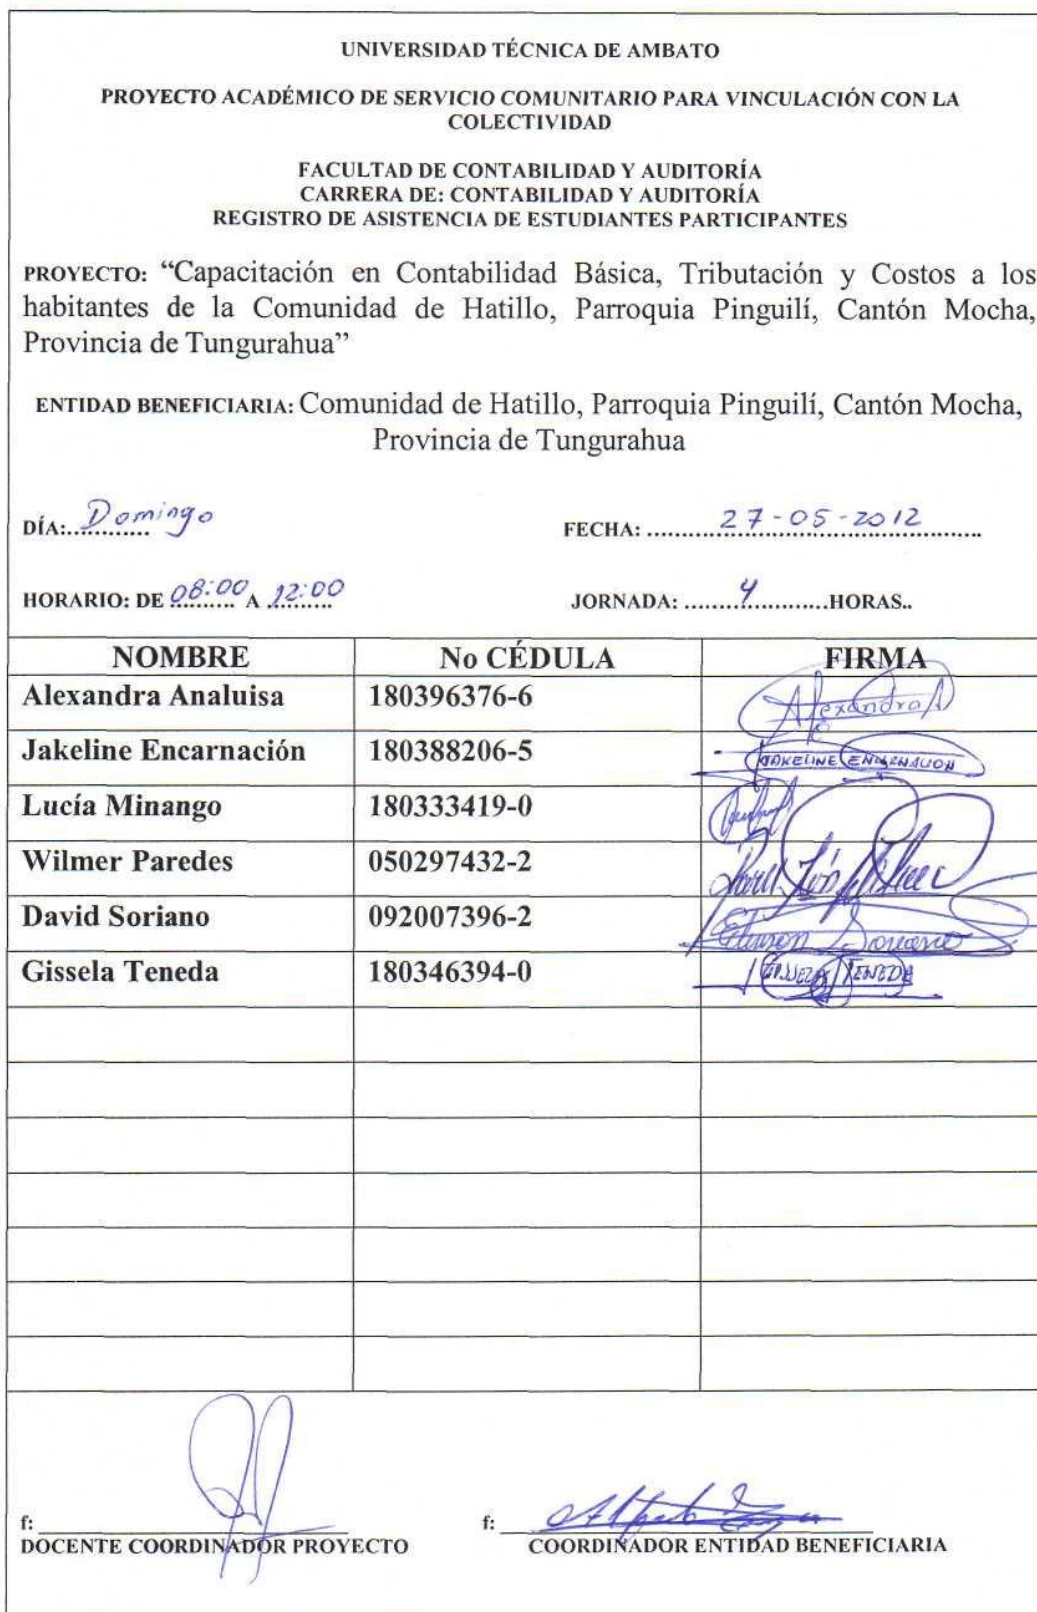 UNIVERSIDAD TÉCNICA DE AMBATO
PROYECTO ACADÉMICO DE SERVICIO COMUNITARIO PARA VINCULACIÓN CON LA
COLECTIVIDAD
FACULTAD DE CONTABILIDAD Y AUDITORÍA
CARRERA DE: CONTABILIDAD Y AUDITORÍA
REGISTRO DE ASISTENCIA DE ESTUDIANTES PARTICIPANTES
PROYECTO: “Capacitación en Contabilidad Básica, Tributación y Costos a los
habitantes de la Comunidad de Hatillo, Parroquia Pinguilí, Cantón Mocha,
Provincia de Tungurahua”
ENTIDAD BENEFICIARIA: Comunidad de Hatillo, Parroquia Pinguilí, Cantón Mocha,
Provincia de Tungurahua
DÍA: Domingo FECHA: 27-05-2012
HORARIO: DE 08:00 A 12:00 JORNADA: 4 HORAS..
NOMBRE No CÉDULA FIRMA
Alexandra Analuisa 180396376-6 Alexandra A
Jakeline Encarnación 180388206-5 JAKELINE ENCARNACION
Lucía Minango 180333419-0
Wilmer Paredes 050297432-2
David Soriano 092007396-2 Soriano
Gissela Teneda 180346394-0 GISSELA TENEDA
f: f:
DOCENTE COORDINADOR PROYECTO COORDINADOR ENTIDAD BENEFICIARIA